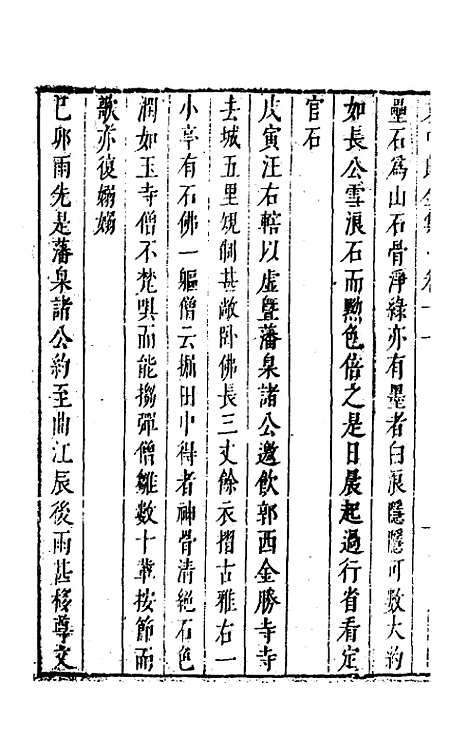 壘石爲山石骨淨綠亦有墨者白痕隱隱可數大約
如長公雪浪石而黝色倍之是日晨起過行省看定
官石
戊寅汪右轄以虛曁藩臬諸公邀飲郭西金勝寺寺
去城五里規制甚敞卧佛長三丈餘衣摺古雅右一
小亭有石佛一軀僧云掘田中得者神骨清絕石色
潤如玉寺僧不梵唄而能搊彈僧雛數十輩按節而
歌亦復嫋嫋
已卯雨先是藩臬諸公約至曲江辰後雨甚移尊文